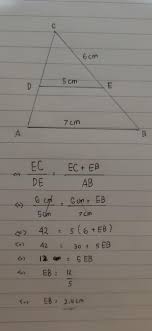 C
6cm
D
5cm
E
A
7cm
B
⇔ EC/DE = EC + EB/AB
⇔ 6cm/5cm = 6cm + EB/7cm
⇔ 42 = 5(6+EB)
⇔ 42 = 30 + 5EB
⇔ 12 = 5EB
⇔ EB = 12/5
⇔ EB = 2.4cm